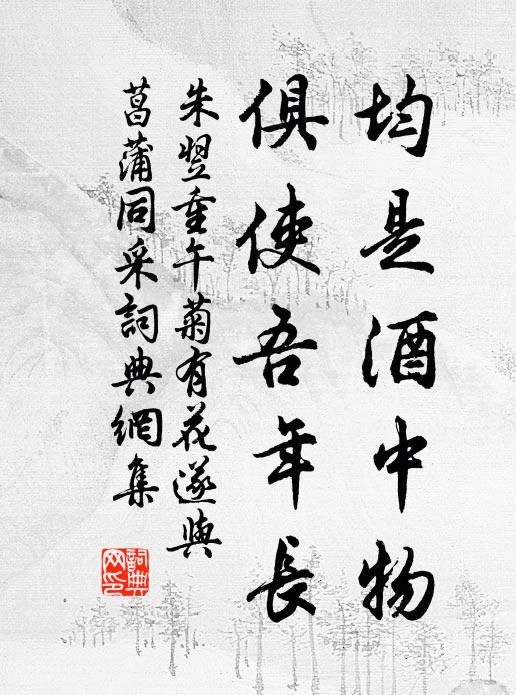 均是酒中物
俱使吾年長
朱翌重午菊有花遂與
菖蒲同采詞典網集
詞典
网印